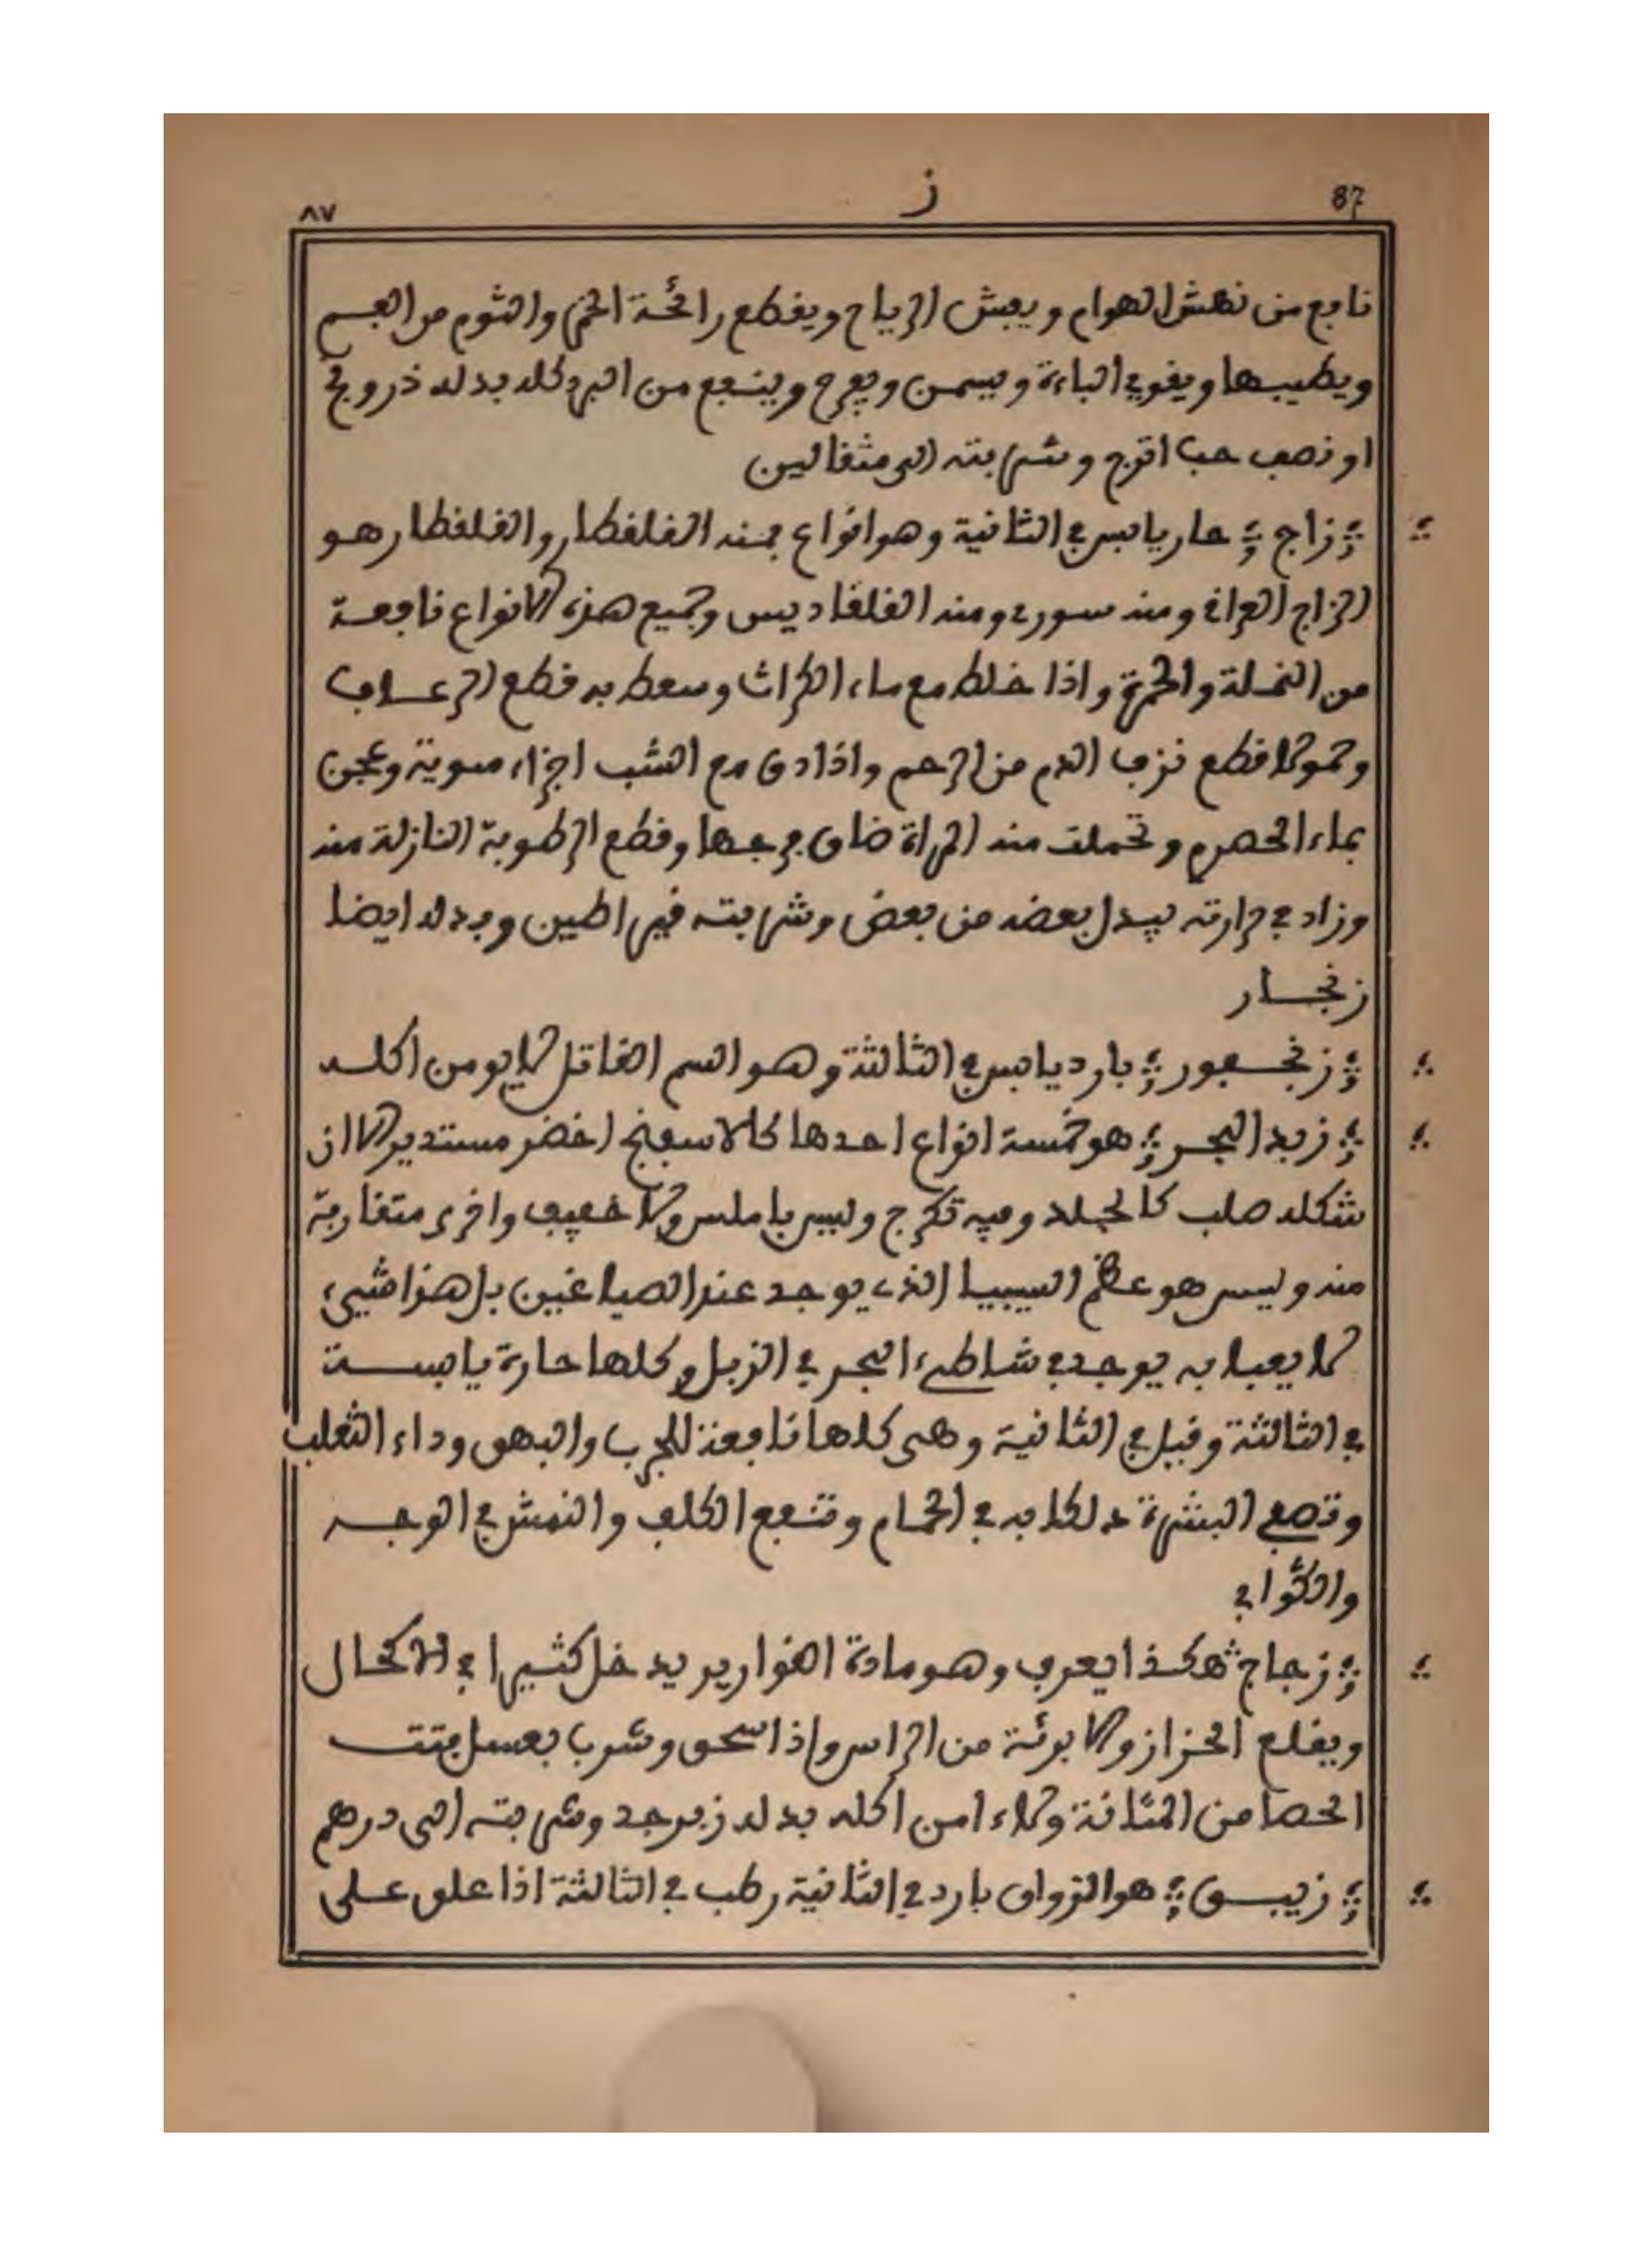 87 ز ٨٧
نافع من نهش الهوام ويفش الرياح ويقطع رائحة الخمر والثوم من الفم
ويطيبها ويقوي الباءة ويسمن ويفرح وينفع من البرد كله بدله ذرونج
او نصف حب اترج وشربته الى مثقالين
زاج حار يابس في الثانية وهو انواع فمنه القلقطار والقلقطار هو
الزاج العراقي ومنه سوري ومنه القلقاديس وجميع هذه الانواع نافعة
من النملة والحمرة واذا خلط مع ماء الكراث وسعط به قطع الرعاف
وحمولا قطع نزف الدم من الرحم واذا دق مع الشب اجزاء سوية وعجن
بماء الحصرم وتحملت منه المراة ضاق فرجها وقطع الرطوبة النازلة منه
وزاد في حرارته يبدل بعضه من بعض وشربته قيراطين وبدله ايضا
زنجار
زنجفور بارد يابس في الثالثة وهو السم القاتل لا يومن اكله
زبد البحر هو خمسة انواع احدها كالاسفنج اخضر مستدير الا ان
شكله صلب كالجلد وفيه تكرج وليس باملس ولا خفيف واخرى متقاربة
منه وليس هو عظم السيبيا الذي يوجد عند الصياغين بل هذا شيء
لا يعبا به يوجد في شاطىء البحر في الزبل وكلها حارة يابسة
في الثالثة وقيل في الثانية وهى كلها نافعة للجرب والبهق وداء الثعلب
وتصفي البشرة دلكا به في الحمام وتنفع الكلف والنمش في الوجه
والكوابي
زجاج هكذا يعرف وهو مادة القوارير يدخل كثيرا في الاكحال
ويقلع الحزاز والابرئة من الراس واذا سحق وشرب بعسل فتت
الحصا من المثانة ولاء امن اكله بدله زبرجد وشربته الى درهم
زيبق هو الزواق بارد في الثانية رطب في الثالثة اذا علق على